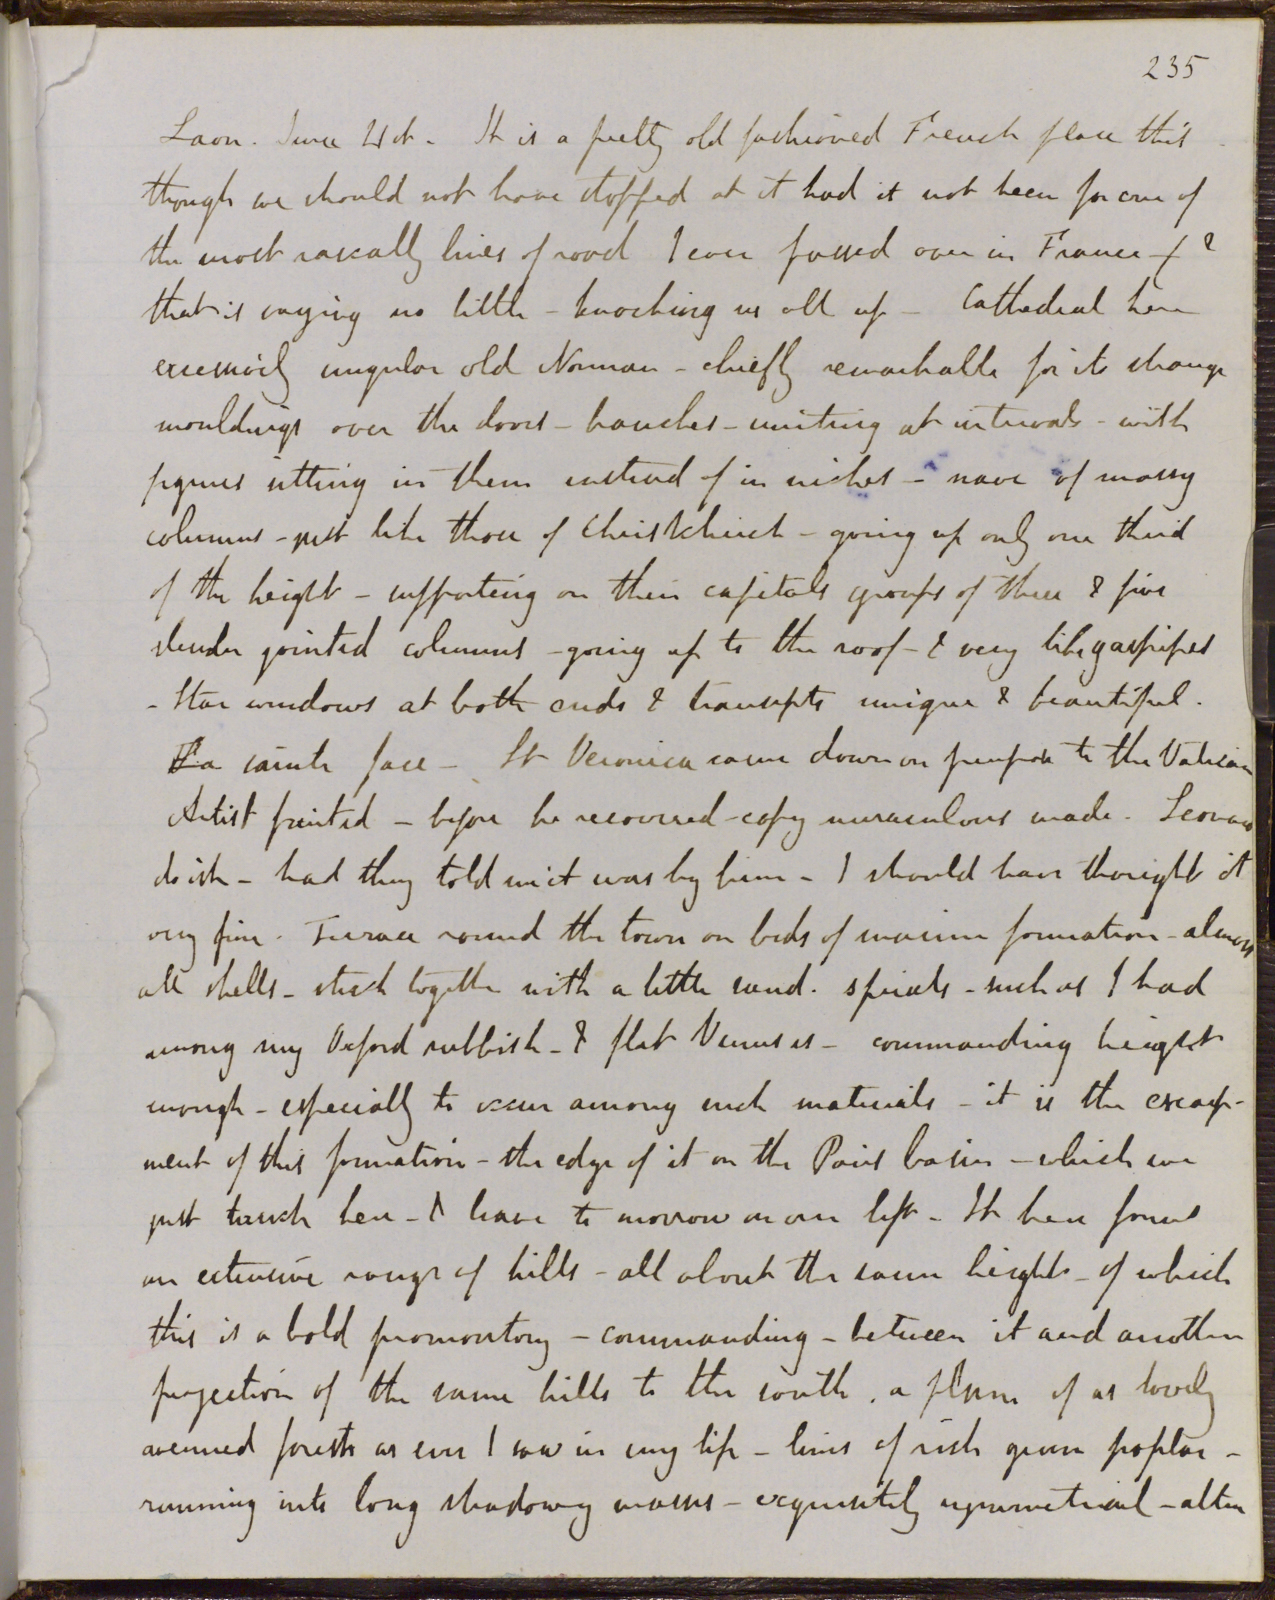 235
Laon. June 21st. It is a pretty old fashioned French place this
though we should not have stopped at it had it not been for one of
the most rascally lines of road I ever passed over in France - &
that is saying no little - knocking us all up - Cathedral here
excessively singular old Norman - chiefly remarkable for its strange
mouldings over the doors - branches - uniting at intervals - with
figures sitting in them instead of in niches - nave of massy
columns - just like those of Christchurch - going up only one third
of the height - supporting on their capitals groups of three & five
slender jointed columns - going up to the roof - & very like gaspipes
- Star windows at both ends & transepts unique & beautiful.
La sainte face - St Veronica came down on purpose to the Vatican
Artist fainted - before he recovered - copy miraculous made. Leonar
doish - had they told me it was by him - I should have thought it
very fine. Terrace round the town on beds of marine formation - almost
all shells - stuck together with a little sand. spirals - such as I had
among my Oxford rubbish - & flat Venuses - commanding height
enough - especially to occur among such materials - it is the escarp-
ment of this formation - the edge of it on the Paris basin - which we
just touch here - & leave to morrow on our left - It here forms
an extensive range of hills - all about the same height - of which
this is a bold promontory - commanding - between it and another
projection of the same hills to the south, a plain of as lovely
avenued forests as ever I saw in my life - lines of rich green poplar -
running into long shadowy masses - exquisitely symmetrical - alter